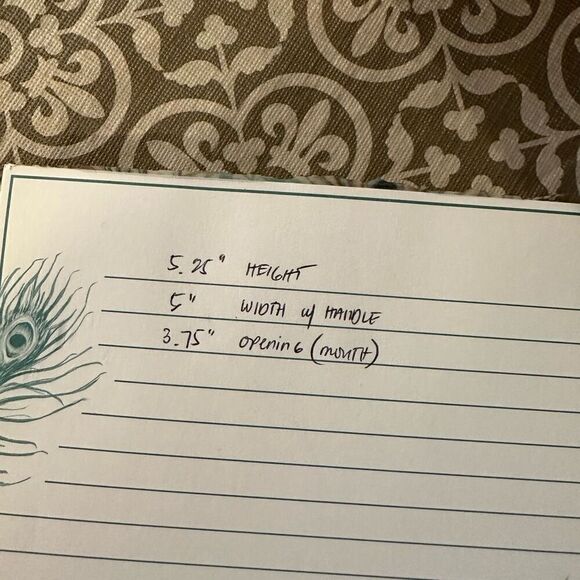 5.25" HEIGHT
5" WIDTH w/ HANDLE
3.75" opening (mouth)